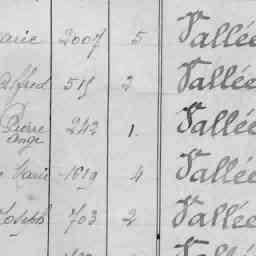 arie 2007 5 Vallée
Alfred 515 2 Vallée
Pierre Ange 242 1 Vallée
Marie 1619 4 Vallée
Joseph 703 2 Vallée